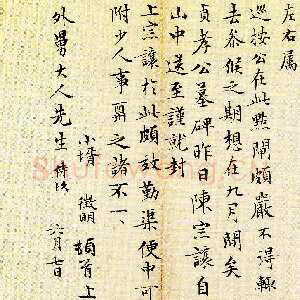 左右属
巡按公在此點閘頗嚴不得輒
去参候之期想在九月間矣
貞孝公墓碑昨日陳宗讓自
山中送至謹就封
上宗讓於此頗效勤渠便中可
附少人事
之諸不一
小壻徵明頓首上
外舅大人先生侍次
六月七日